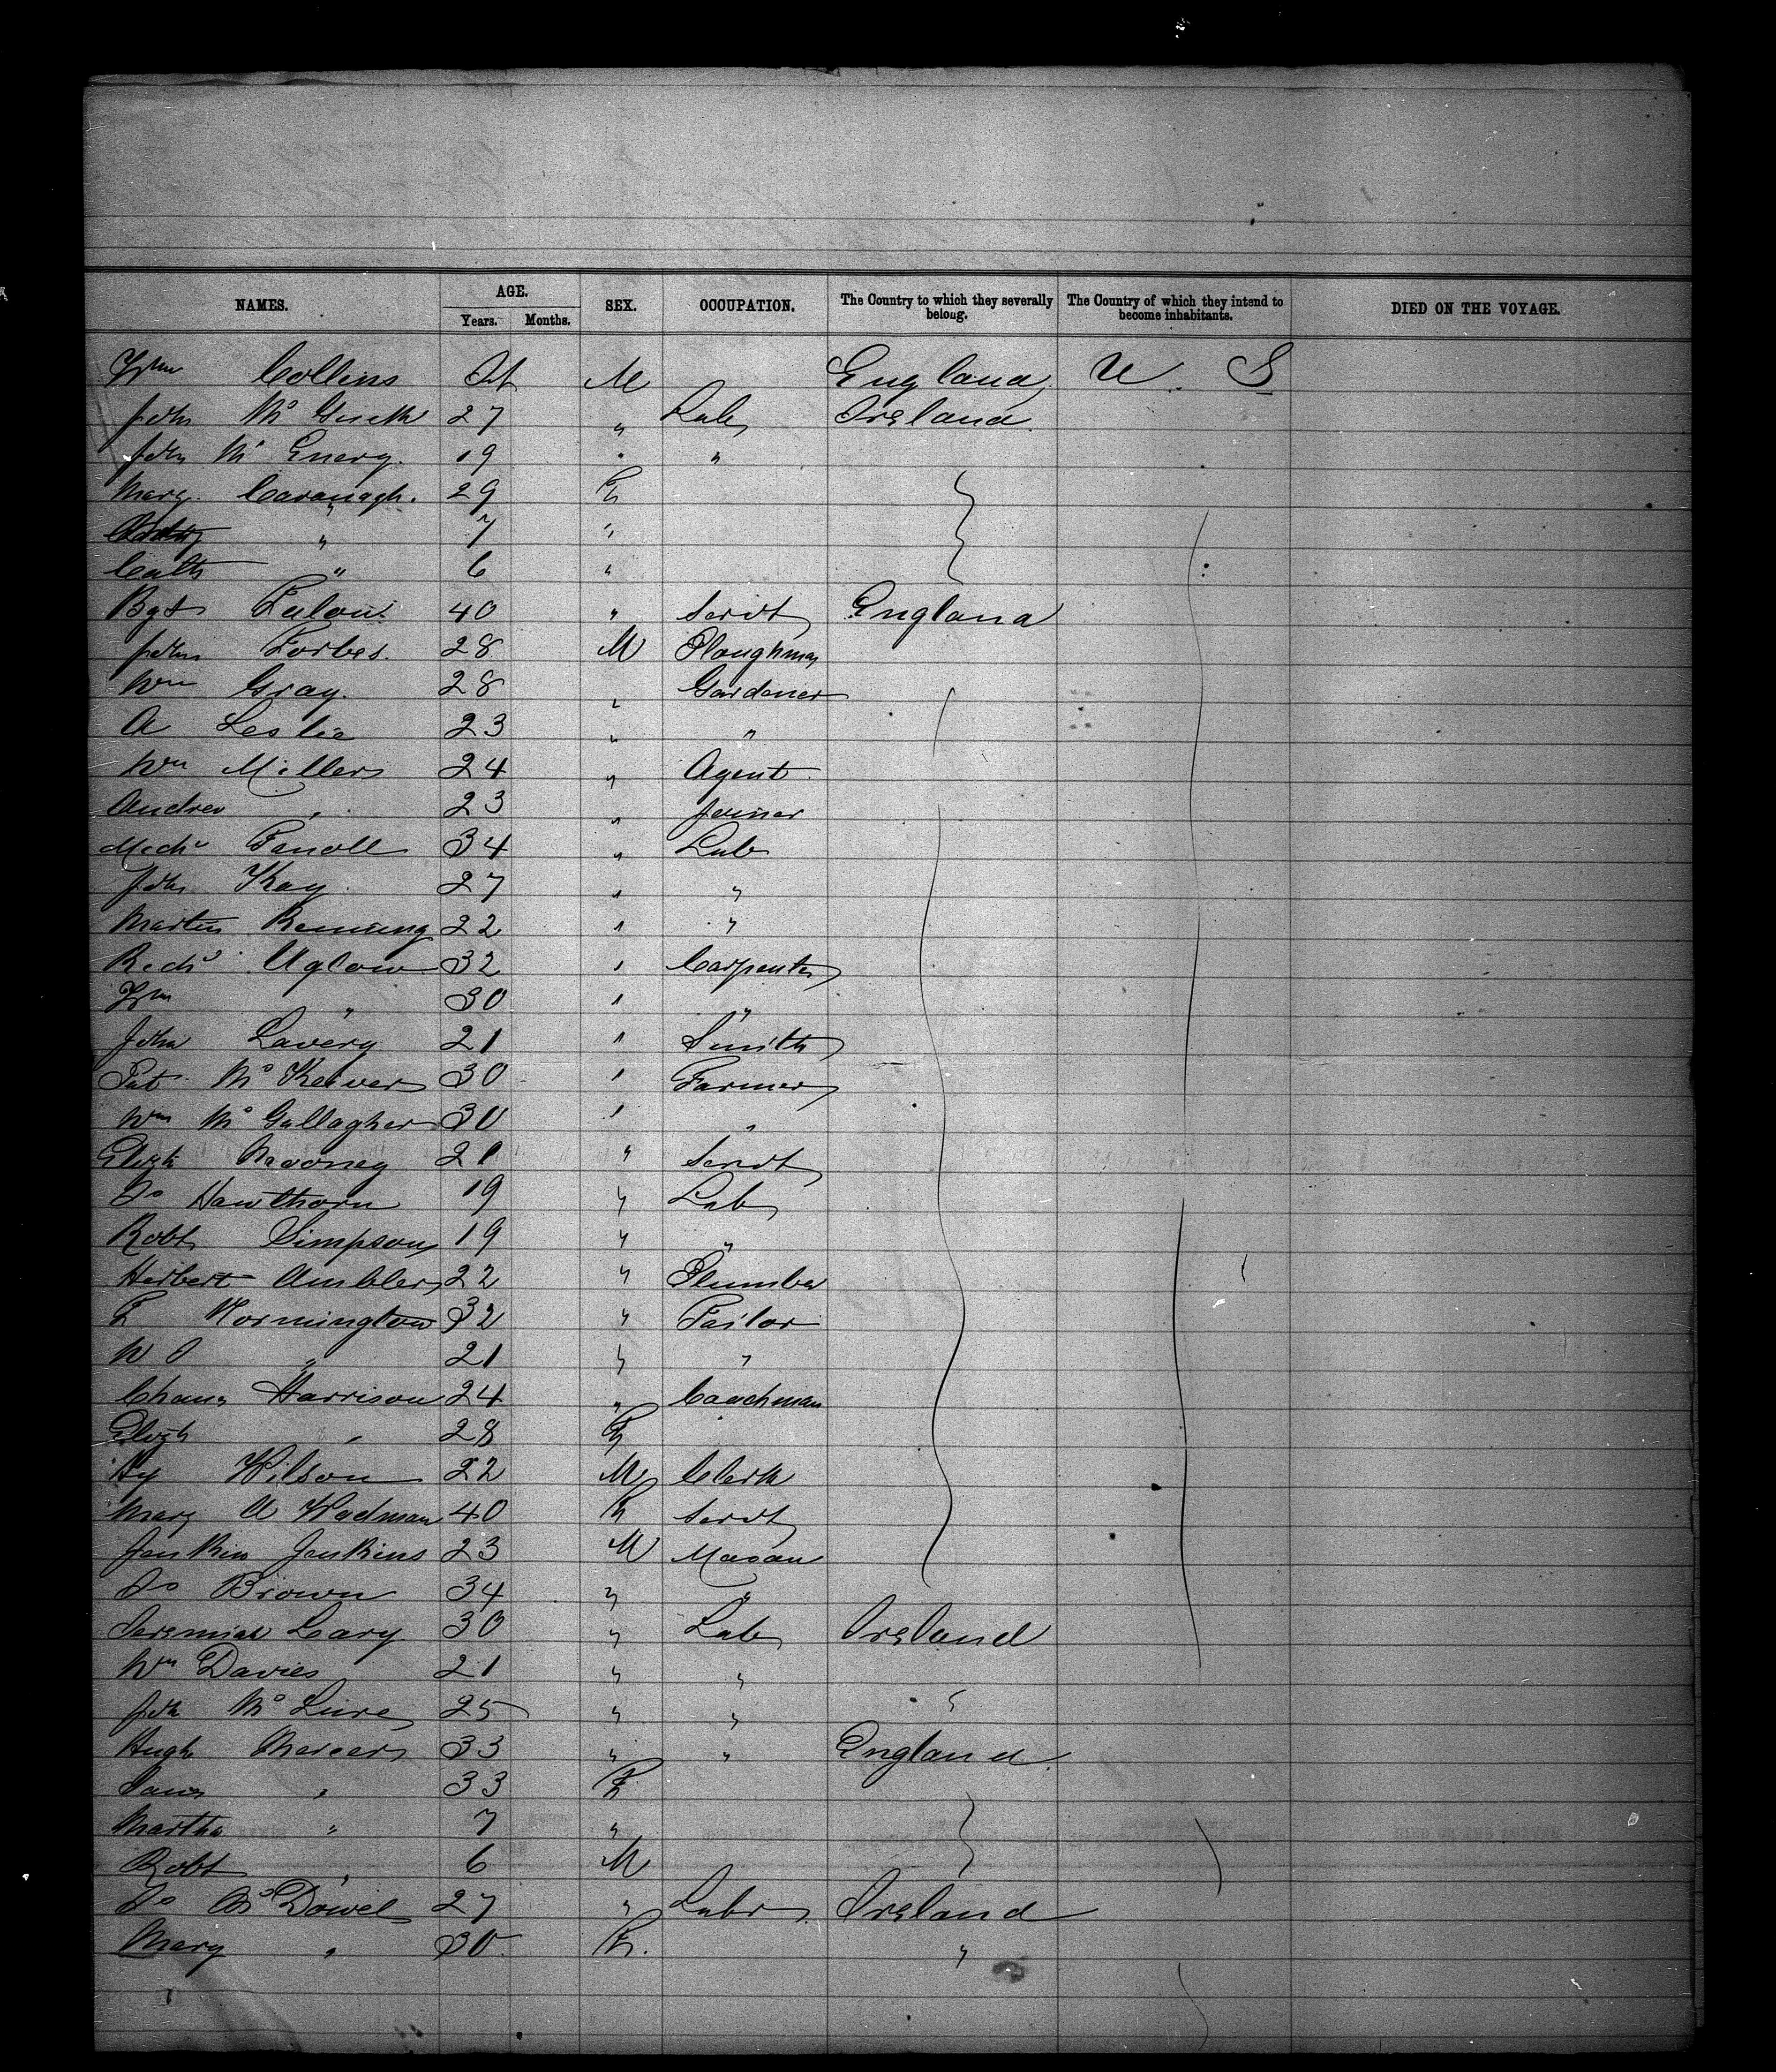 NAMES. AGE. Years. Months. SEX. OCCUPATION. The Country to which they severally belong. The Country of which they intend to become inhabitants. DIED ON THE VOYAGE.
Collins M England U. S
John Mc 27 " Lab Ireland
John Mc Enery. 19 " "
Marg. Cavanagh. 29 F
" 7 "
Cath " 6 "
Bgt 40 " Servt England
John Forbes. 28 M Ploughman
Wm Gray. 28 " Gardener
A Leslie 23 " "
Wm Millers 24 " Agent
Andrew " 23 " Joiner
Michl 34 " Lab
John Kay 27 " "
Martin 22 " "
Richd Uglow 32 " Carpenter
" 30 " "
John Lavery 21 " Smith
Pat Mc Keever 30 " Farmer
Wm Mc Gallagher 30 " "
Elizth Mooney 21 " Servt
Jo Hawthorn 19 " Lab
Robt Simpson 19 " "
Herbert Ambler 22 " Plumber
F Normington 32 " Tailor
W " 21 " "
Harrison 24 " Coachman
Elizth " 28 F
Hy Wilson 22 M Clerk
Mary A Wadman 40 F Servt
Jenkin Jenkins 23 M Mason
Jo Brown 34 " "
Jeremiah Leary 30 " Lab Ireland
Wm Davies 21 " "
John Mc 25 " " "
Hugh Mercer 33 " " England
Jane " 33 F
Martha " 7 "
Robt " 6 M
Jo McDowel 27 " Labr Ireland
Mary " 30 F. "